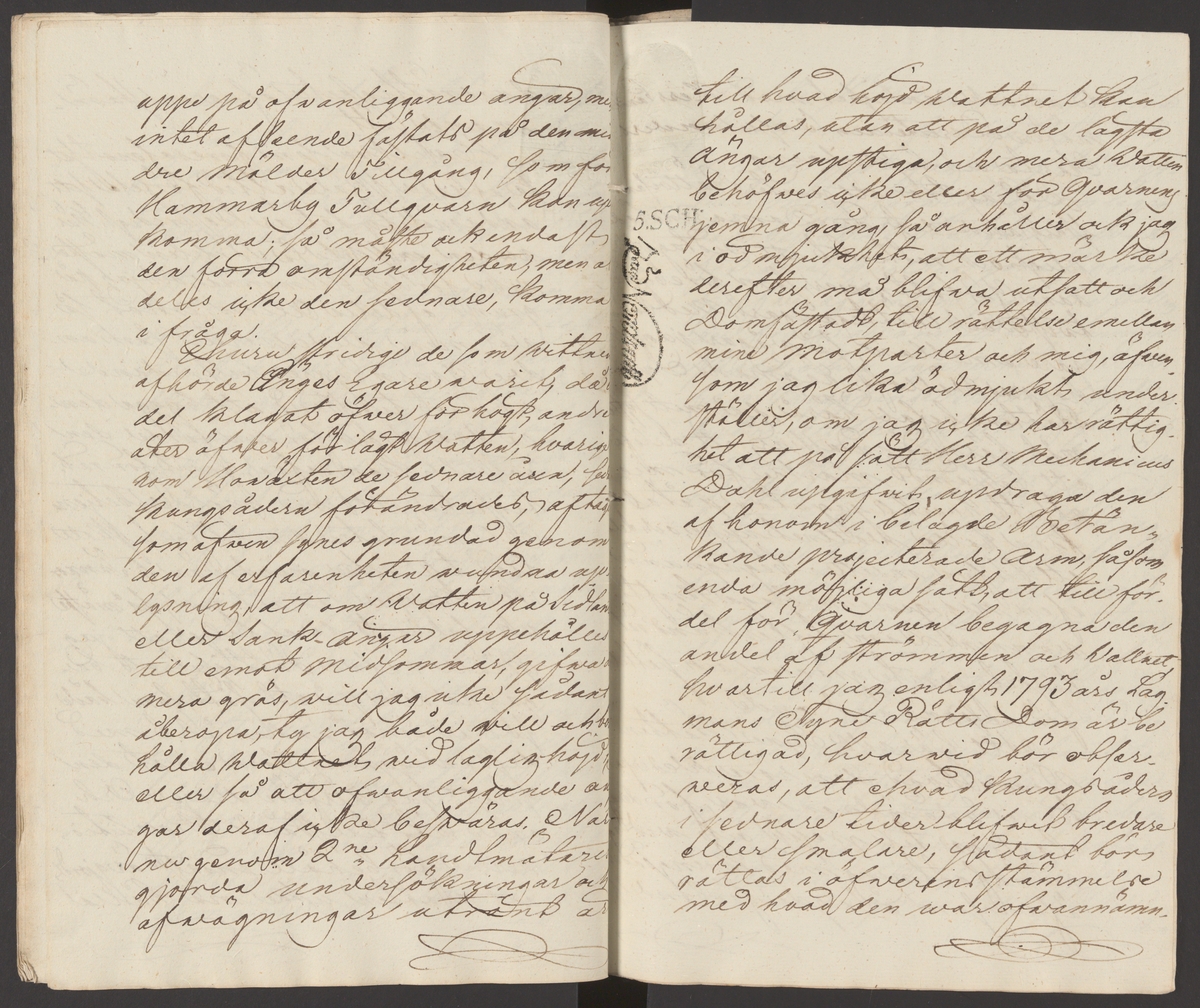 uppe på ofwanliggande ängar, men
intet afseende fästats på den min
dre Mölder Tillgång, som för
Hammarby Tullqvarn kan upp
komma; så måste ock endast
den förra omständigheten, men al
deles icke den sednare, komma
i fråga.
Ehuru stridige de som Wittnen
afhörde Änges Egare warit, då en
del klagat öfwer för högt, andre
åter öfwer för lågt Watten, hwarige
nom Höväxten de sednare åren,
Kungsådern förändrades, aftag
som äfwen synes grundad genom
den af erfarenheten wundna upp
lysning, att om Watten på Sidlän
eller Sank Ängar uppehålles
till emot Midsommar, gifwa
mera gräs, will jag icke sådant
åberopa, ty jag både will och bör
hålla Wattnet wid laglig höjd,
eller så att ofwanliggande än
gar deraf icke beswäras. När
nu genom 2ne Landtmätare
gjorda undersökningar och
afwägningar utrönt är
till hvad höjd Wattnet kan
hållas, utan att på de lägsta
Ängar upstiga, och mera Watten
behöfwes icke eller för Qvarnens
jemna gång, så anhåller ock jag
5.SCH.
i ödmjukhet, att ett märke
derefter må blifwa utsatt och
Domfästadt, till rättelse emellan
mine Motparter och mig, äfwen
som jag lika ödmjukt under
ställer, om jag icke har rättig-
het att på sätt Herr Mechanicus
Dahl upgifwit, updraga den
af honom i bilagde Betän-
kande projecterade Arm, såsom
enda möjliga sätt, att till för-
del för Qvarnen begagna den
andel af strömmen och Wattnet,
hwartill jag enligt 1793 års Lag
mans Syne Rätts Dom är be
rättigad, hwarwid bör obser-
weras, att hvad Kungsådern
i sednare tider blifwit bredare
eller smalare, sådant bör
rättas i öfwerensstämmelse
med hvad den war ofwannämn-